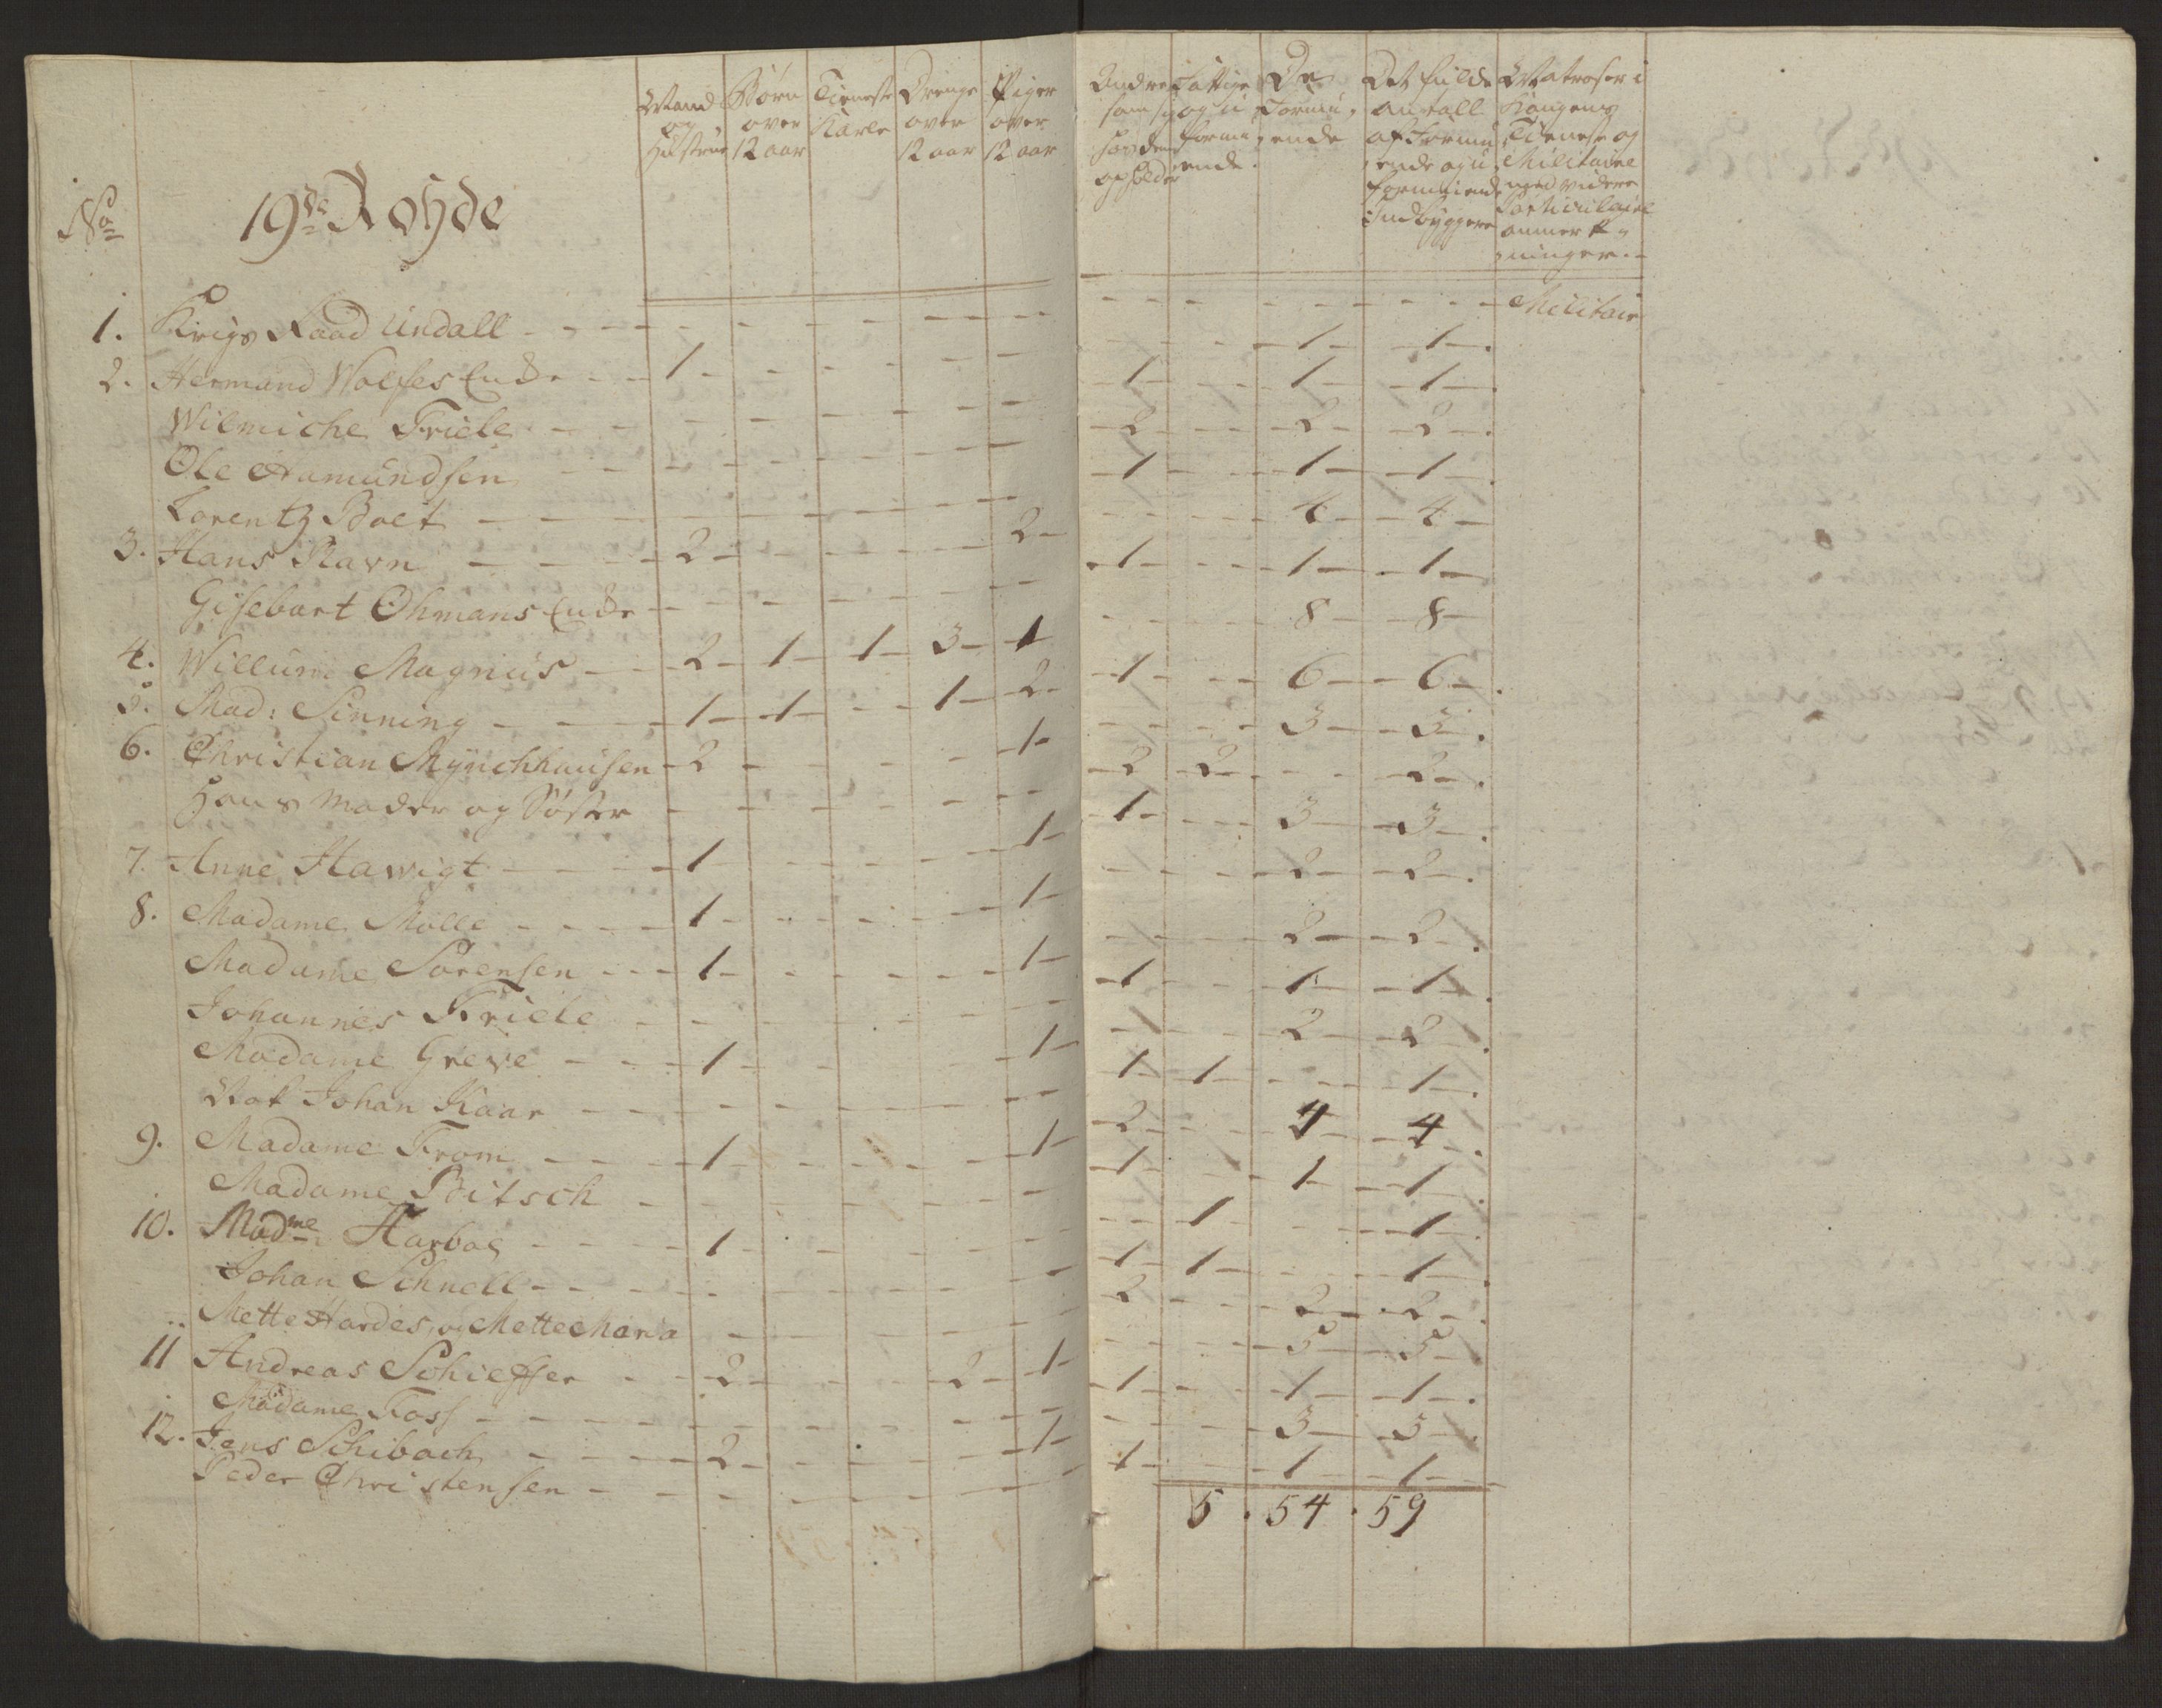 No
19de Royde
Mand og Hustrue
Børn over 12 aar
Tieneste Karle
Drenge over 12 aar
Piger over 12 aar
Andre som sig hos dem opholder
Fattige og u formuende.
De Formuende
Det fulde Antall af Formuende og u formuende Indbyggere
Matroser i Kongens Tieneste og Militaire med videre Particulaire anmerkninger.
1. Krigs Raad Undall - - - - - - - - - - - Militair
2. Hermand Wolfes Enke - - 1 - - - - - - - 1 - 1 -
Wilmiche Friele - - - - - - - 1 - - 1 - 1 -
Ole Aamundsen - - - - - - - 2 - - 2 - 2 -
Lorentz Boet - - - - - - - 1 - - 1 - 1 -
3. Hans Ravn - - - - 2 - - - - 2 - - - 4 - 4 -
Gisebart Ohmans Enke - - - - - - - 1 - - 1 - 1 -
4. Willum Magnus - - 2 - 1 - 1 - 3 - 1 - - - 8 - 8 -
5. Mad: Sinning - - - 1 - 1 - - 1 - 2 - 1 - - 6 - 6 -
6. Christian Mynchhausen - 2 - - - - 1 - - - 3 - 3 -
Hans Moder og Søster - - - - - - 2 - 2 - - - 2 -
7. Anne Hawigt - - - - 1 - - - - 1 - 1 - - 3 - 3 -
8. Madame Mølle - - - - 1 - - - - 1 - - - 2 - 2 -
Madame Sørensen - - - 1 - - - - 1 - - - 2 - 2 -
Johannes Friele - - - - - - 1 - - 1 - 1 -
Madame Greve - - - 1 - - - - 1 - - - 2 - 2 -
Mat Johan Kaar - - - - - - - 1 - 1 - - - 1 -
9. Madame From - - - - 1 - - - - 1 - 2 - - 4 - 4 -
Madame Bitsch - - - - - - 1 - - 1 - 1 -
10. Madme Harboe - - - - 1 - - - - - - 1 - - - 1 -
Johan Schnell - - - - - - - 1 - 1 - - - 1 -
Mette Hardes, og Mette Maria - - - - - 2 - - 2 - 2 -
11 Andreas Schieffer - - 2 - - - 2 - 1 - - - 5 - 5 -
Madame Foss - - - - - - - 1 - - 1 - 1 -
12. Jens Schibach - - - - 2 - - - - 1 - - - 3 - 3 -
Peder Christensen - - - - - - - 1 - - 1 - 1 -
5 . 54 . 59